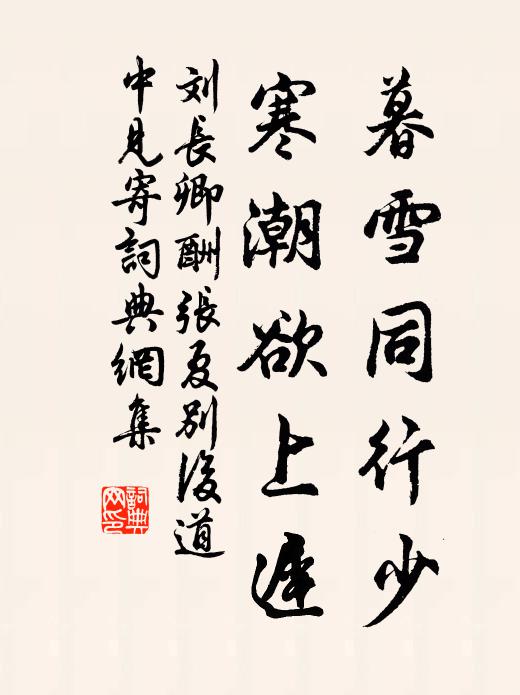 暮雪同行少
寒潮欲上遲
刘長卿酬張夏別後道
中見寄詞典網集
詞典網印